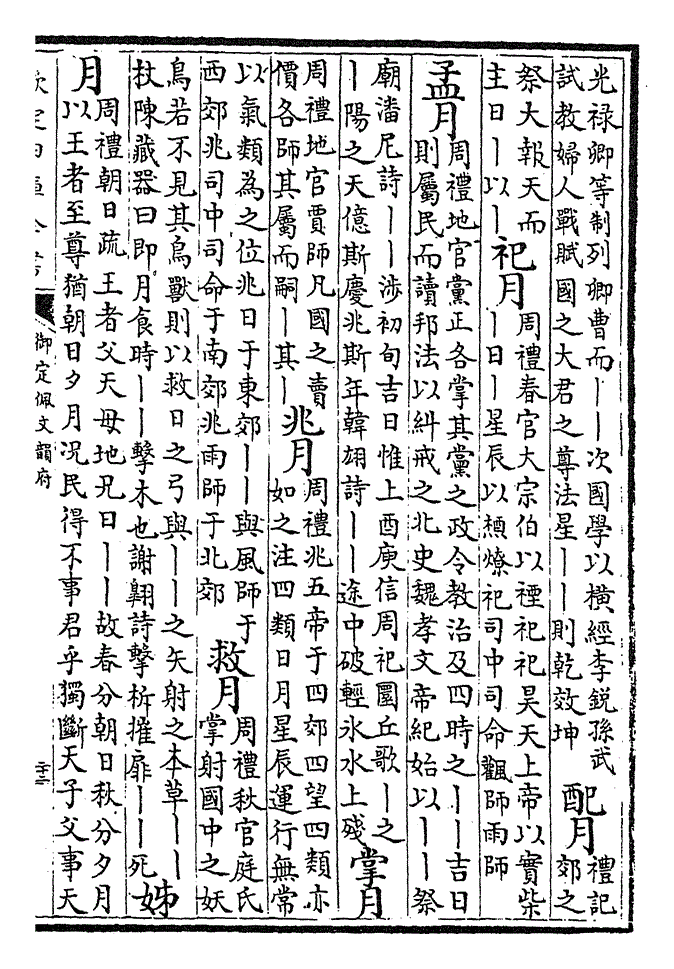 光禄卿等制列卿曹而丨丨次國學以横經李鋭孫武
試教婦人戰賦國之大君之尊法星丨丨則乾效坤
配月
禮記
郊之
祭大報天而
主日丨以丨
祀月
周禮春官大宗伯以禋祀祀昊天上帝以實柴
丨日丨星辰以槱燎祀司中司命飌師雨師
孟月
周禮地官黨正各掌其黨之政令教治及四時之丨丨吉日
則屬民而讀邦法以糾戒之北史魏孝文帝紀始以丨丨祭
廟潘尼詩丨丨涉初旬吉日惟上酉庾信周祀圜丘歌丨之
丨陽之天億斯慶兆斯年韓翃詩丨丨途中破輕氷水上殘
掌月
周禮地官賈師凡國之賣
價各師其屬而嗣丨其丨
兆月
周禮兆五帝于四郊四望四類亦
如之注四類日月星辰運行無常
以氣類為之位兆日于東郊丨丨與風師于
西郊兆司中司命于南郊兆雨師于北郊
救月
周禮秋官庭氏
掌射國中之妖
鳥若不見其鳥獸則以救日之弓與丨丨之矢射之本草丨丨
杖陳藏器曰即月食時丨丨擊木也謝翺詩擊柝摧扉丨丨死
姊
月
周禮朝日疏王者父天母地兄日丨丨故春分朝日秋分夕月
以王者至尊猶朝日夕月況民得不事君乎獨斷天子父事天
欽定四庫全書
御定佩文韻府